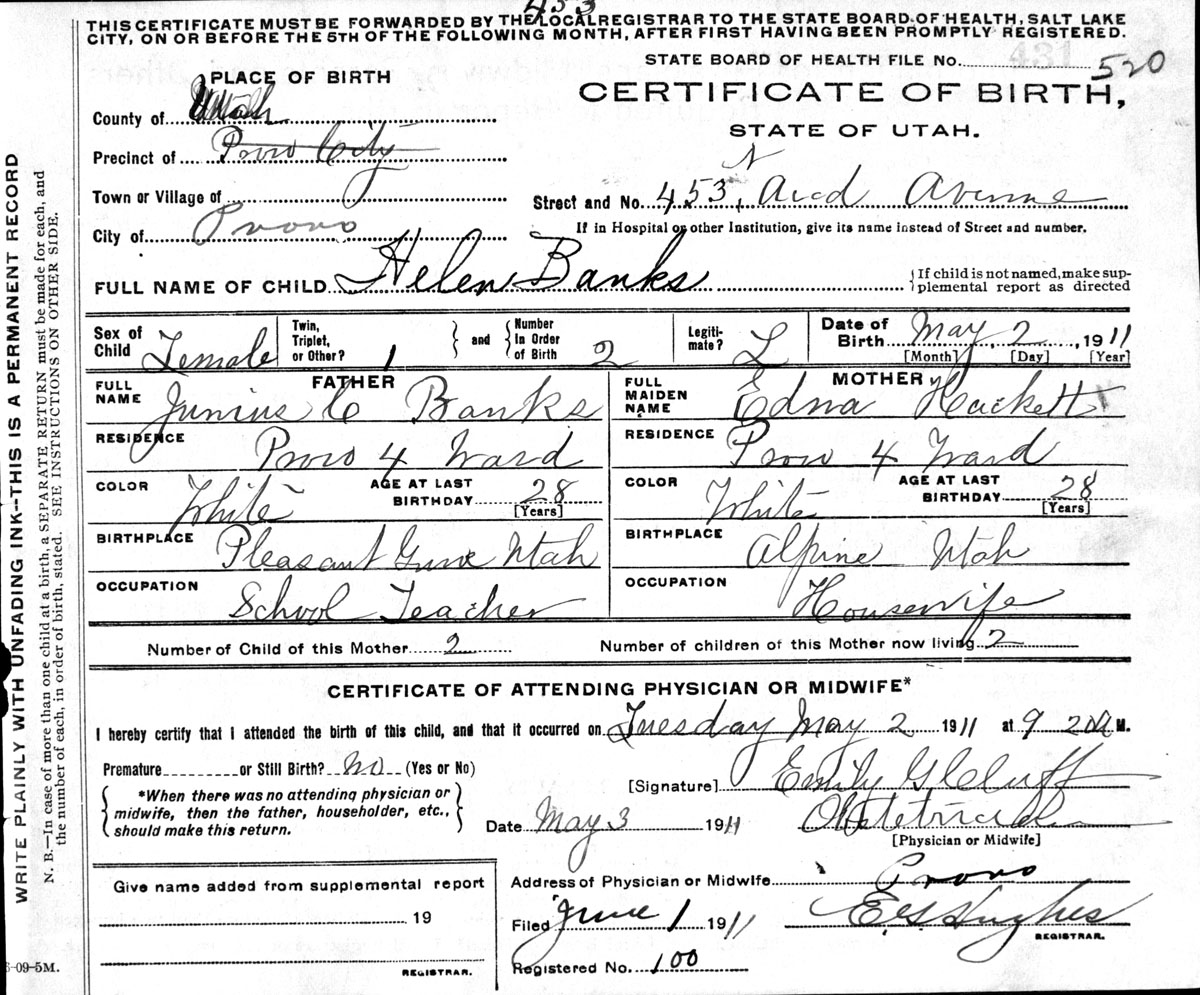 453
THIS CERTIFICATE MUST BE FORWARDED BY THE LOCAL REGISTRAR TO THE STATE BOARD OF HEALTH, SALT LAKE
CITY, ON OR BEFORE THE 5TH OF THE FOLLOWING MONTH, AFTER FIRST HAVING BEEN PROMPTLY REGISTERED.
STATE BOARD OF HEALTH FILE No. 431 520
PLACE OF BIRTH
CERTIFICATE OF BIRTH,
STATE OF UTAH.
County of Utah
Precinct of Provo City
Town or Village of
City of Provo
Street and No. 453 N Avenue
If in Hospital or other Institution, give its name instead of Street and number.
FULL NAME OF CHILD Helen Banks
{If child is not named, make sup-
plemental report as directed
Sex of Child Female
Twin, Triplet, or Other? 1
and
Number In Order of Birth 2
Legiti-mate? L
Date of Birth May 2, 1911
[Month] [Day] [Year]
FATHER
FULL NAME Junius C Banks
RESIDENCE Provo 4 Ward
COLOR White
AGE AT LAST BIRTHDAY 28
[Years]
BIRTHPLACE Pleasant Grove Utah
OCCUPATION School Teacher
MOTHER
FULL MAIDEN NAME Edna Hackett
RESIDENCE Provo 4 Ward
COLOR White
AGE AT LAST BIRTHDAY 28
[Years]
BIRTHPLACE Alpine Utah
OCCUPATION Housewife
Number of Child of this Mother 2
Number of children of this Mother now living 2
CERTIFICATE OF ATTENDING PHYSICIAN OR MIDWIFE*
I hereby certify that I attended the birth of this child, and that it occurred on Tuesday May 2 1911 at 9 20 A M.
Premature or Still Birth? No (Yes or No)
*When there was no attending physician or
midwife, then the father, householder, etc.,
should make this return.
[Signature] Emily G Cluff
Date May 3 1911
Obstetrician
[Physician or Midwife]
Give name added from supplemental report
19
REGISTRAR.
Address of Physician or Midwife Provo
Filed June 1 1911
E G Hughes
REGISTRAR.
Registered No. 100
-09-5M.
WRITE PLAINLY WITH UNFADING INK—THIS IS A PERMANENT RECORD
N. B.—In case of more than one child at a birth, a SEPARATE RETURN must be made for each, and
the number of each, in order of birth, stated. SEE INSTRUCTIONS ON OTHER SIDE.